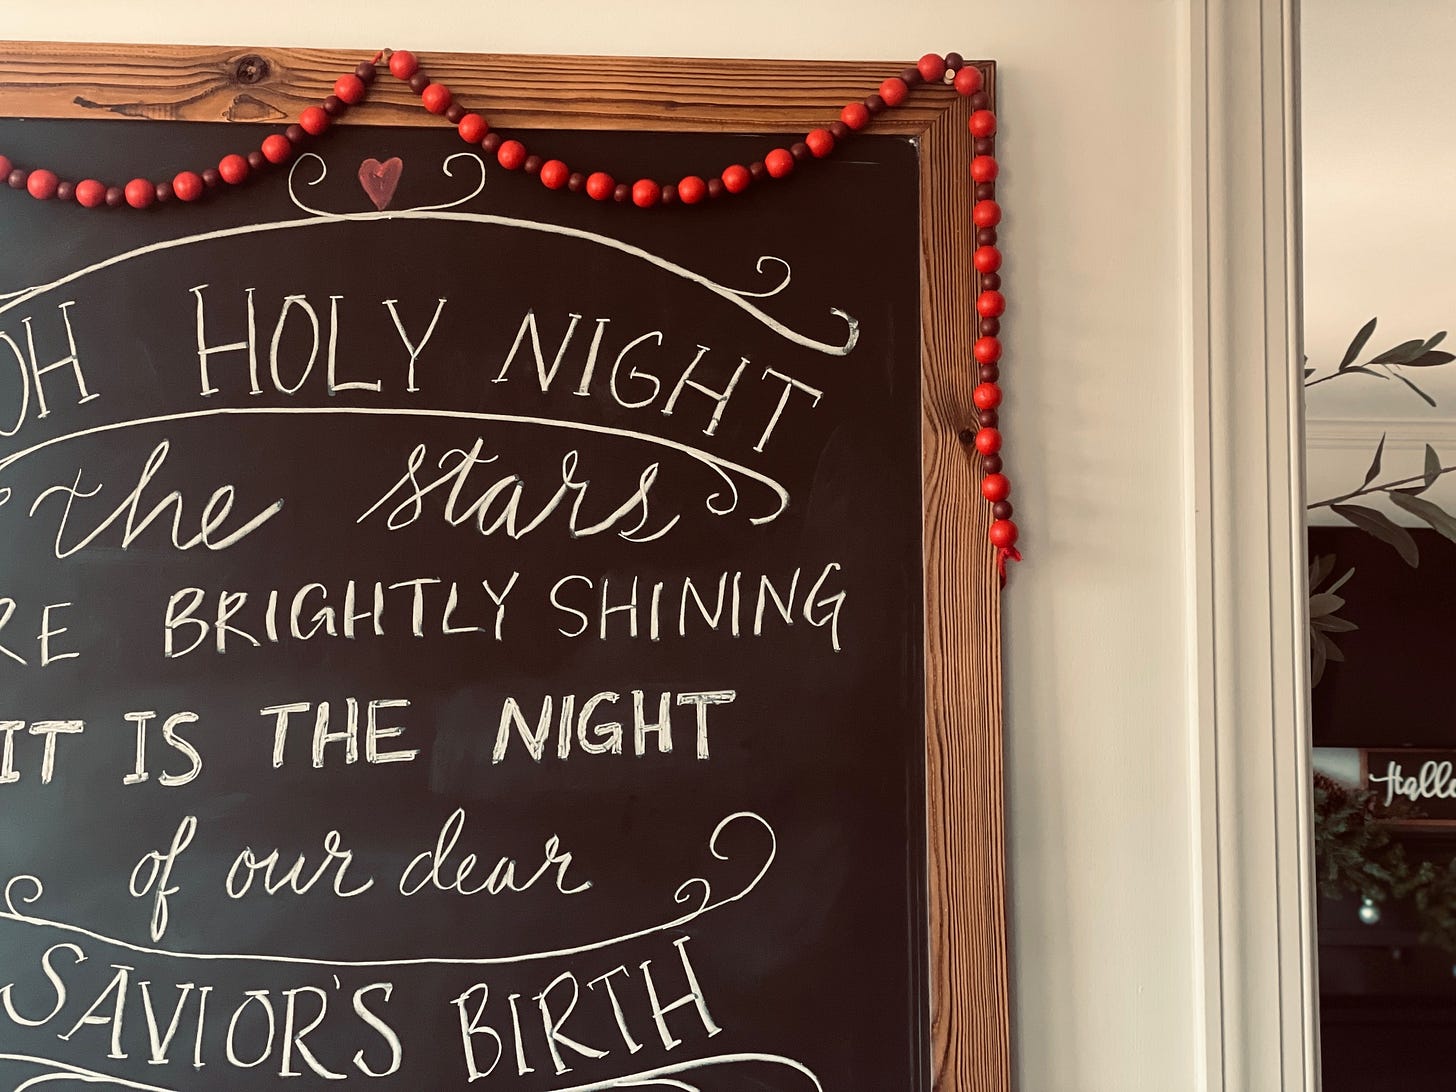 OH HOLY NIGHT
the stars
RE BRIGHTLY SHINING
IT IS THE NIGHT
of our dear
SAVIOR'S BIRTH
Halle